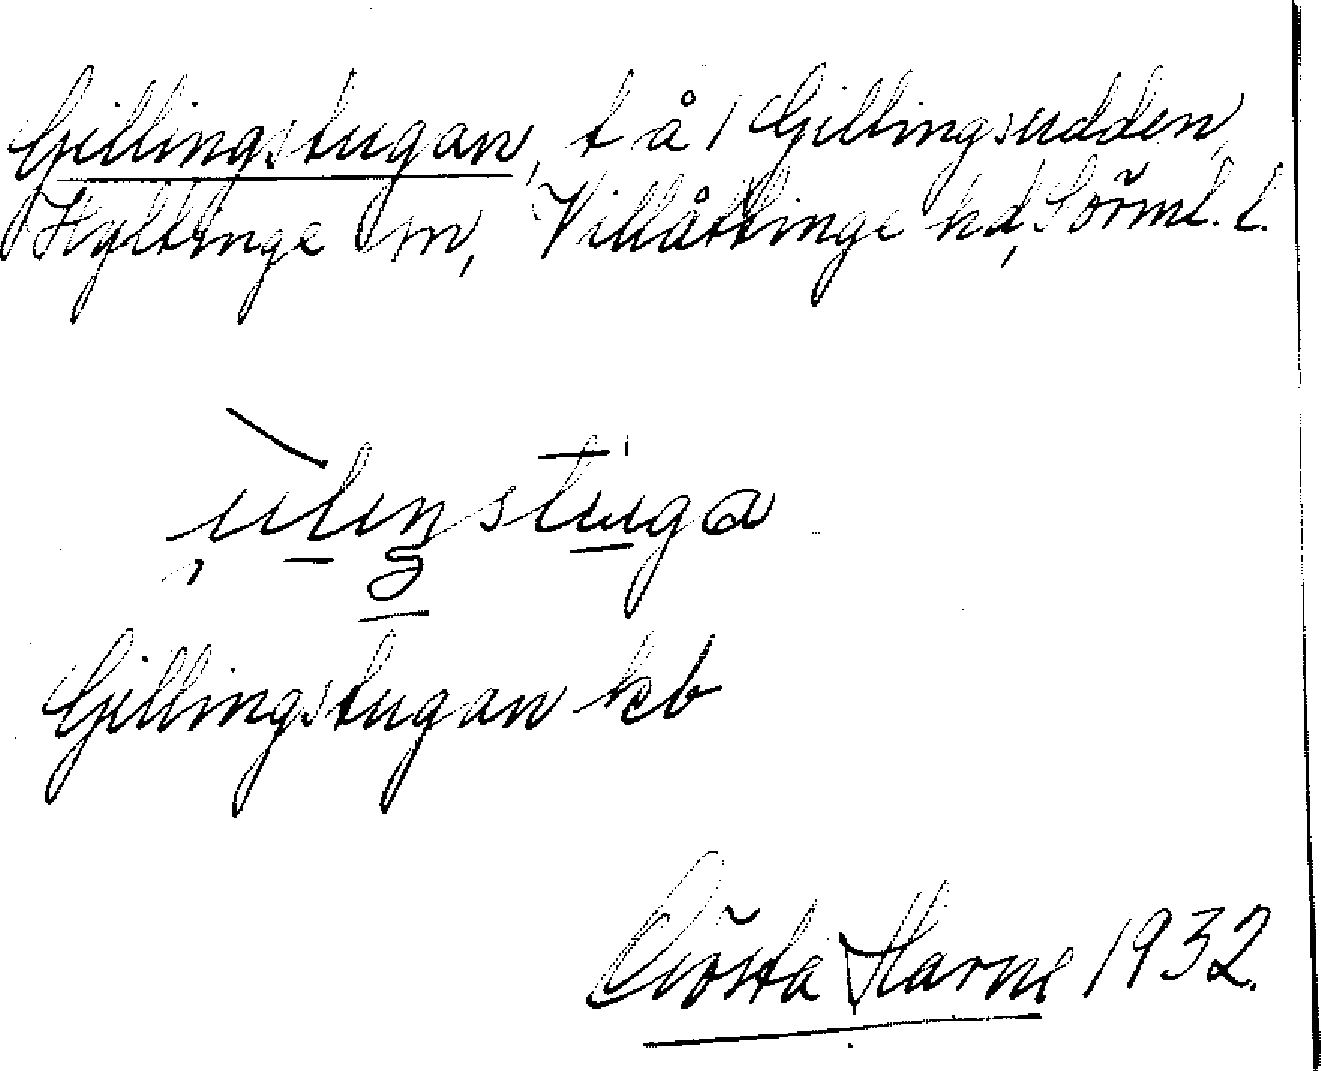 Gillingstugan, t å / Gillingsudden,
Hyltinge sn, Villåttinge hd, Sörml. l.
Gillingstugan kb
Gösta Harne 1932.